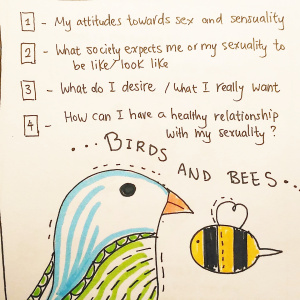 1 - My attitudes towards sex and sensuality
2 - What society expects me or my sexuality to
be like/look like
3 - What do I desire / What I really want
4 - How can I have a healthy relationship
with my sexuality ?
... BIRDS
AND BEES...